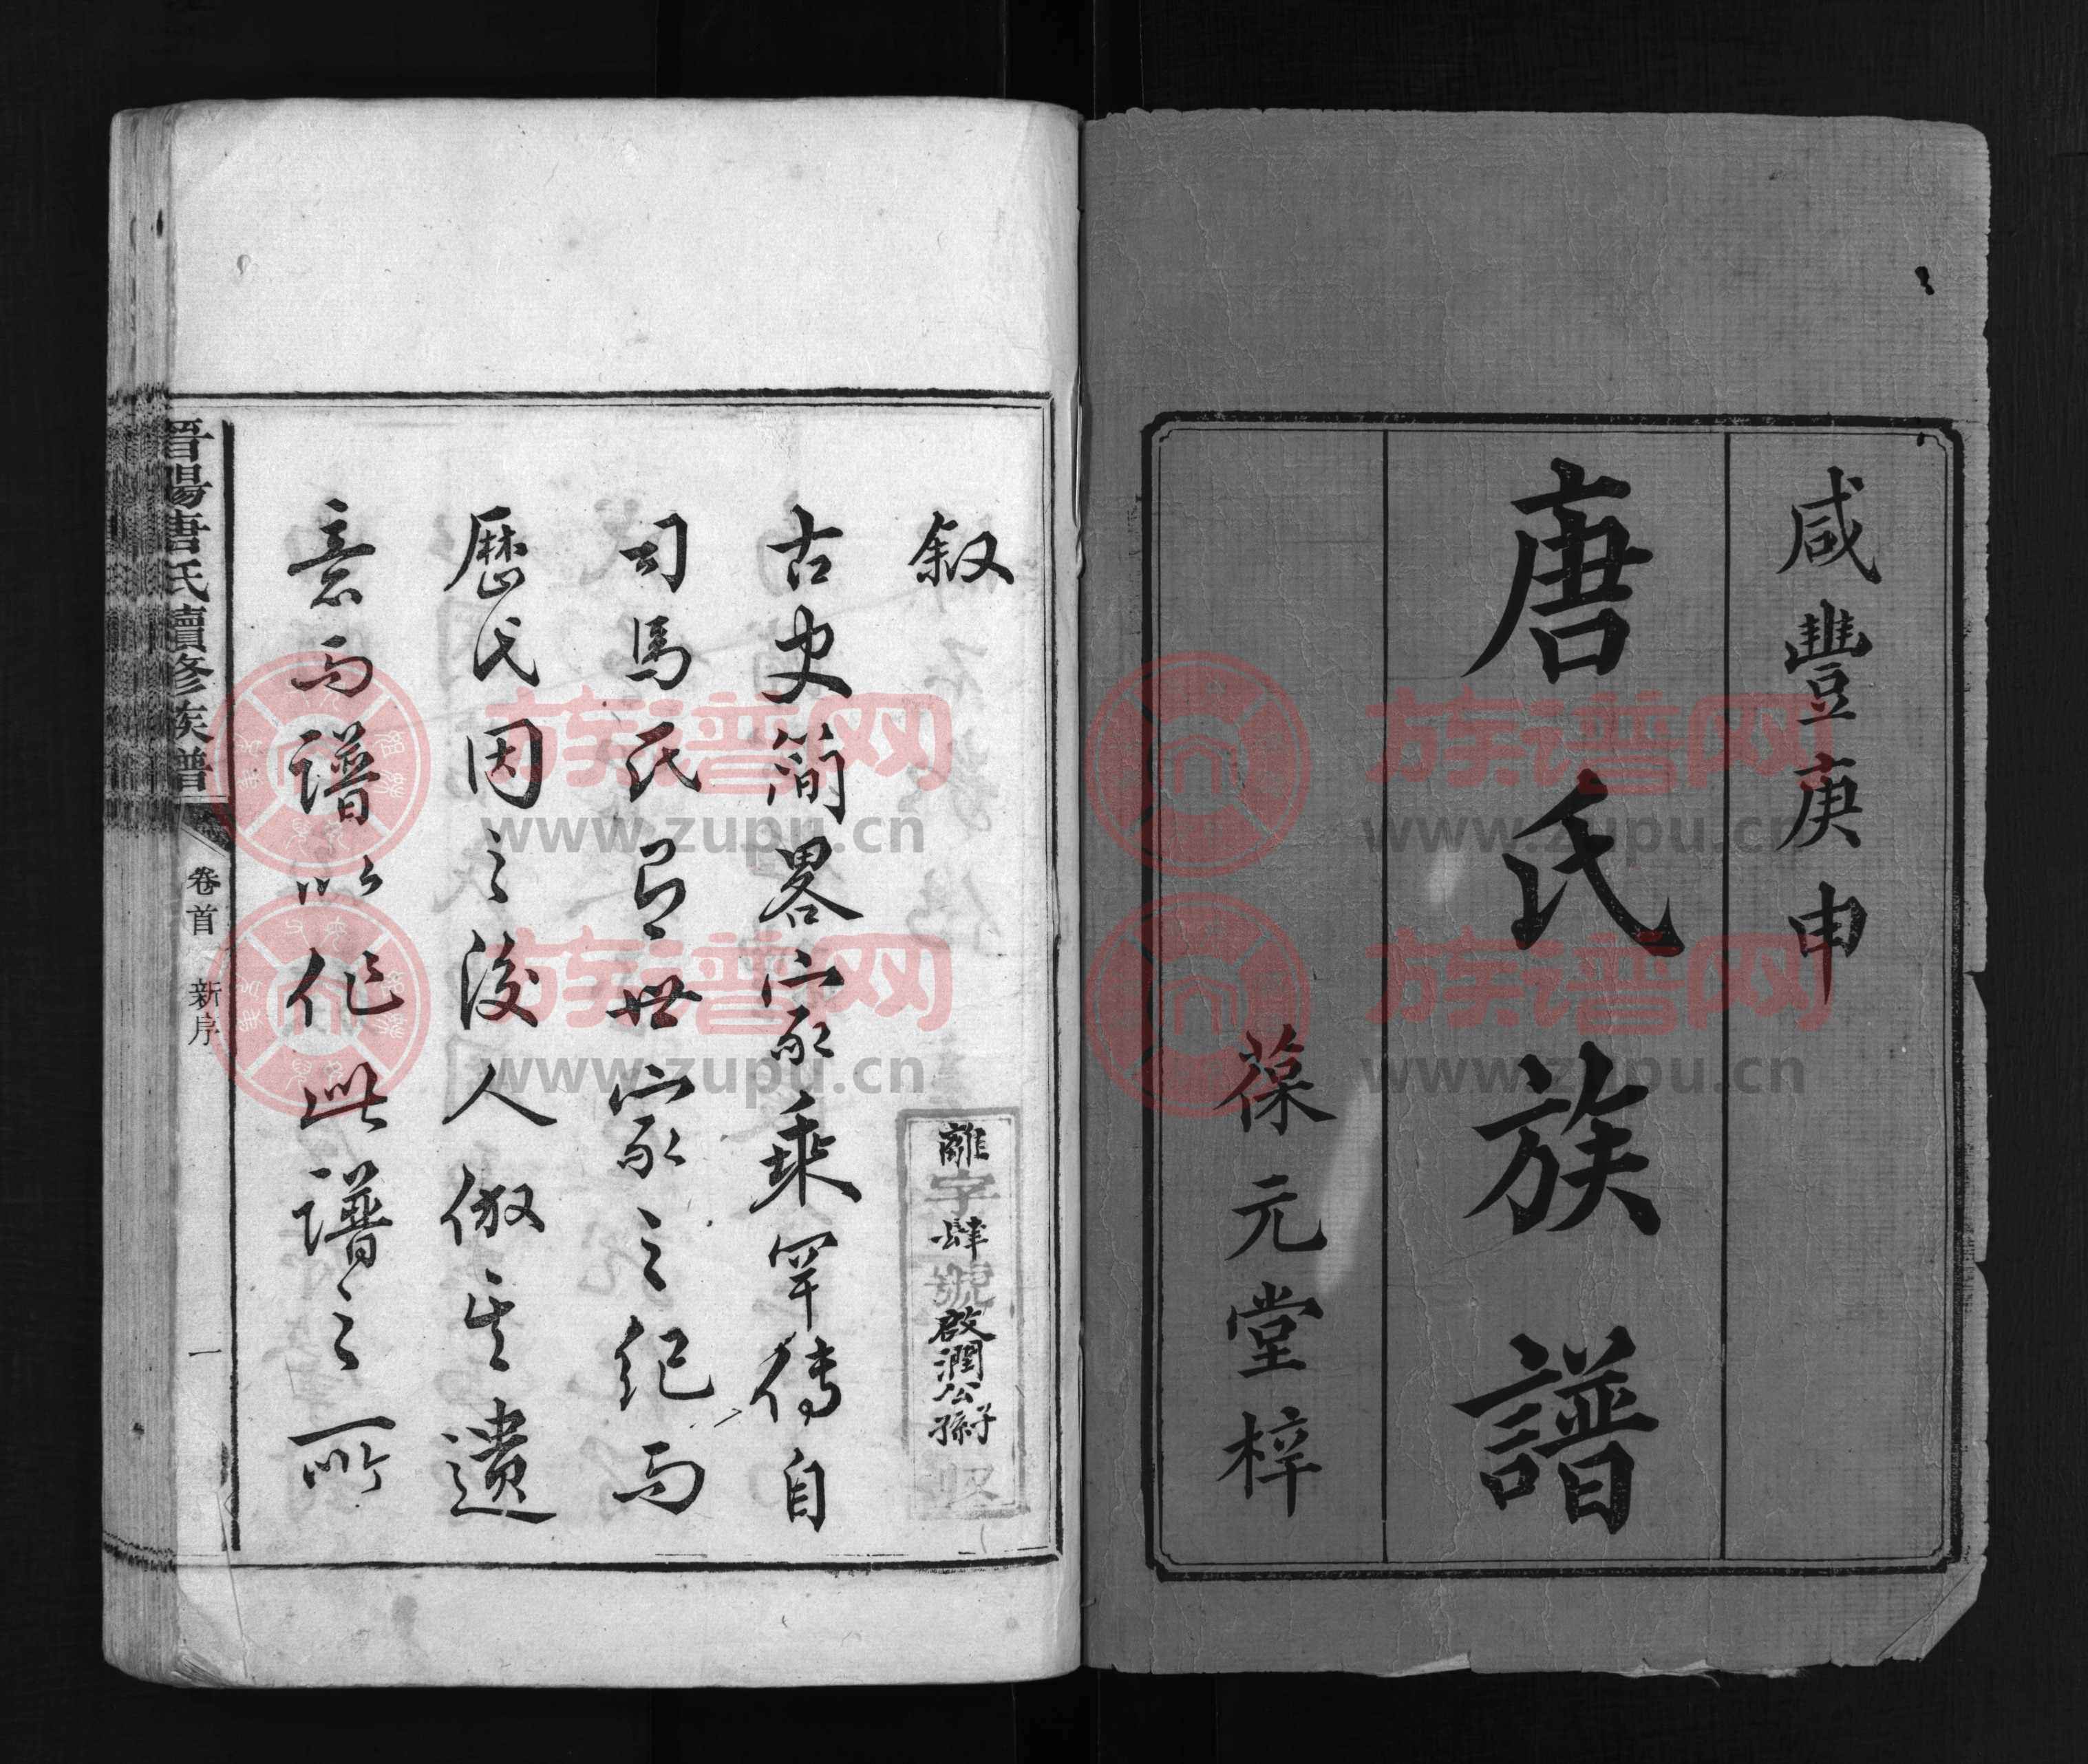 咸豐庚申
唐氏族譜
葆元堂梓
叙
離字肆號啟潤公子孫收
古史簡畧家乘罕傳自
司馬氏有世家之紀而
歷代因之後人倣其遺
意而譜以作此譜之所
晋陽唐氏續修族譜 卷首 新序 一
族谱网
www.zupu.cn
族谱网
www.zupu.cn
族谱网
www.zupu.cn
族谱网
www.zupu.cn